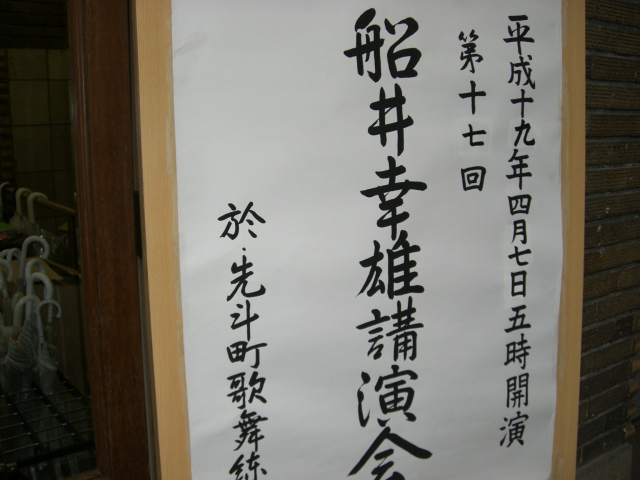 平成十九年四月七日五時開演
第十七回
船井幸雄講演会
於・先斗町歌舞練